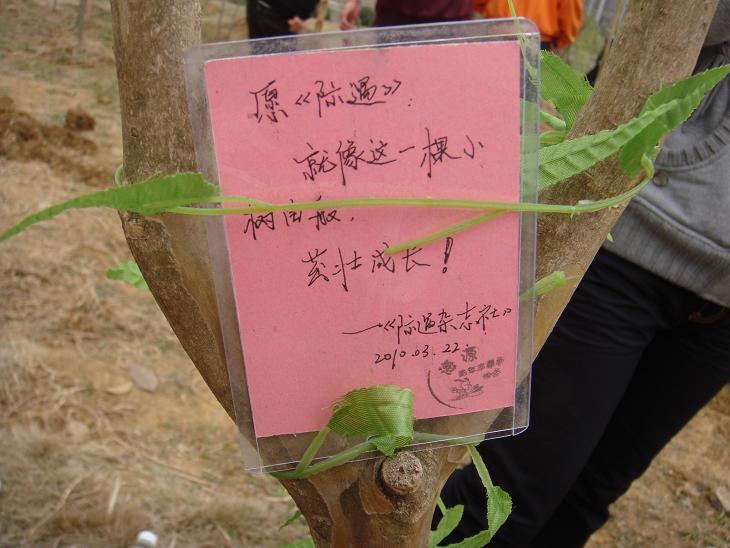 愿《际遇》.
就像这一棵小
树苗般，
茁壮成长！
—《际遇杂志社》
2010.03.22.
源